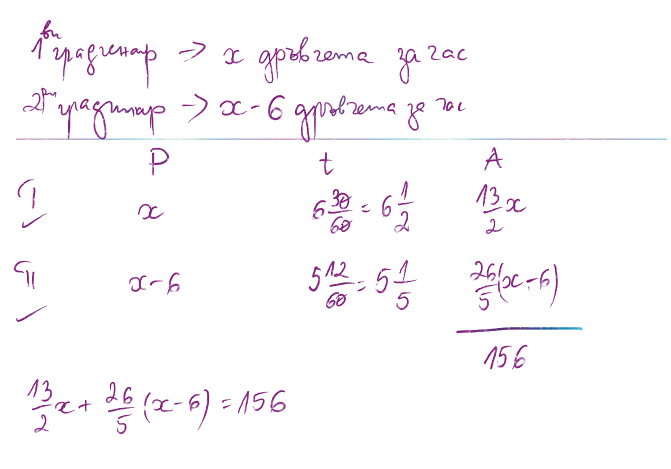 1ви градинар -> x дръвчета за час
2ри градинар -> x-6 дръвчета за час
P t A
I x 6 30/60 = 6 1/2 13/2 x
II x-6 5 12/60 = 5 1/5 26/5 (x-6)
156
13/2 x + 26/5 (x-6) = 156